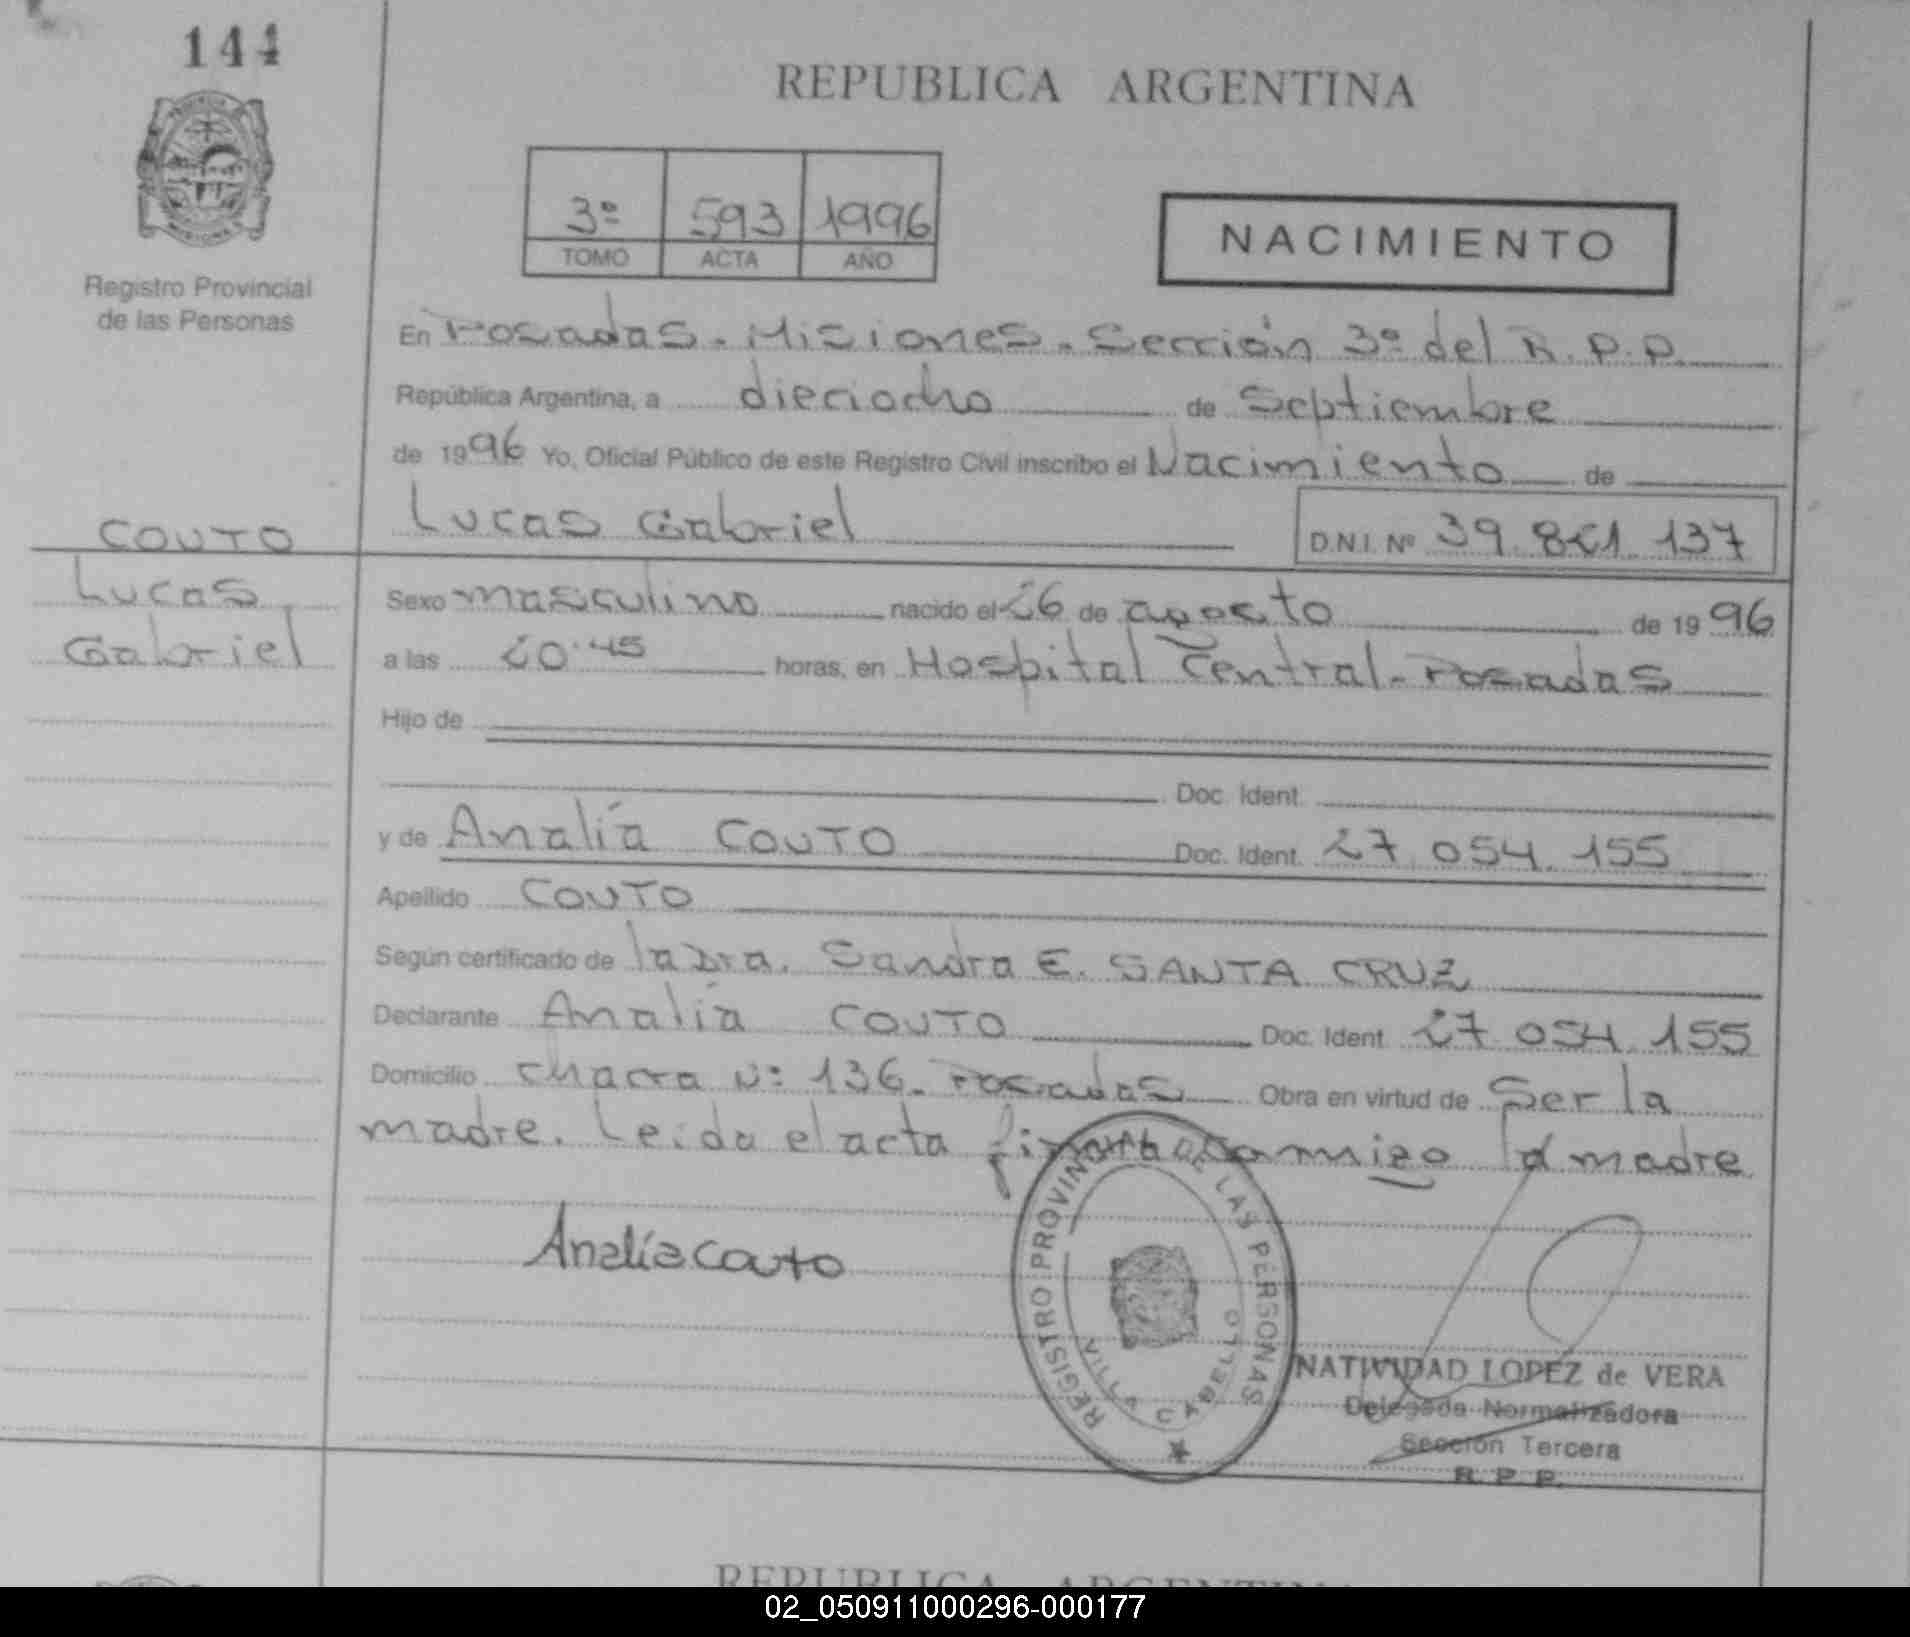 144
REPUBLICA ARGENTINA
3º 593 1996
TOMO ACTA AÑO
NACIMIENTO
Registro Provincial
de las Personas
En Posadas. Misiones. Sección 3º del R.P.P.
República Argentina, a dieciocho de Septiembre
de 1996 Yo, Oficial Público de este Registro Civil inscribo el Nacimiento de
Lucas Gabriel D.N.I. Nº 39.861.137
COUTO
Lucas
Gabriel
Sexo masculino nacido el 26 de agosto de 1996
a las 20:45 horas, en Hospital Central-Posadas
Hijo de
Doc. Ident.
y de Analía COUTO Doc. Ident. 27.054.155
Apellido COUTO
Según certificado de la Dra. Sandra E. SANTA CRUZ
Declarante Analía COUTO Doc. Ident. 27.054.155
Domicilio Chacra Nº 136. Posadas Obra en virtud de Ser la
madre. Leída el acta conmigo la madre
Analía couto
REGISTRO PROVINCIAL DE LAS PERSONAS
VILLA CABELLO
NATIVIDAD LOPEZ de VERA
Delegada Normalizadora
Sección Tercera
R. P. P.
REPUBLICA ARGENTINA
02_050911000296-000177